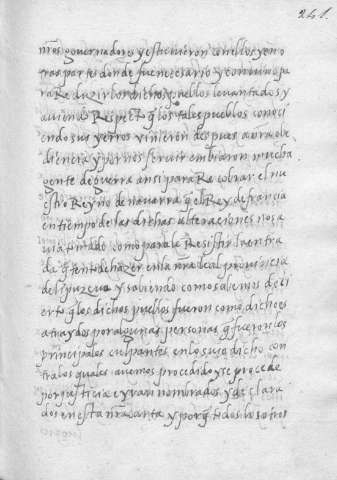 241.
nros governadores y estuvieron en ellos y en o
tras partes donde fue necesario y convino pa
ra Reduzir los dichos pueblos levantados y
aviendo Respecto q los tales pueblos conosci
endo sus yerros vinieron despues a nra obe
diencia y por nos servir embiaron mucha
gente de guerra ansi para Recobrar el nu
estro Reyno de navarra q el Rey de francia
en tiempo de las dichas alteraciones nos a
via tomado como para le Resistir la entra
da q tento de hazer en la nra leal provincia
de lipuzcua y sabiendo como sabemos de ci
erto q los dichos pueblos fueron como dicho es
atraydos por algunas personas q fueron los
principales culpantes en lo suso dicho con
tra los quales avemos procedido y se procede
por justicia e yran nombrados y de clara
dos en esta nra carta y porq todos los otros